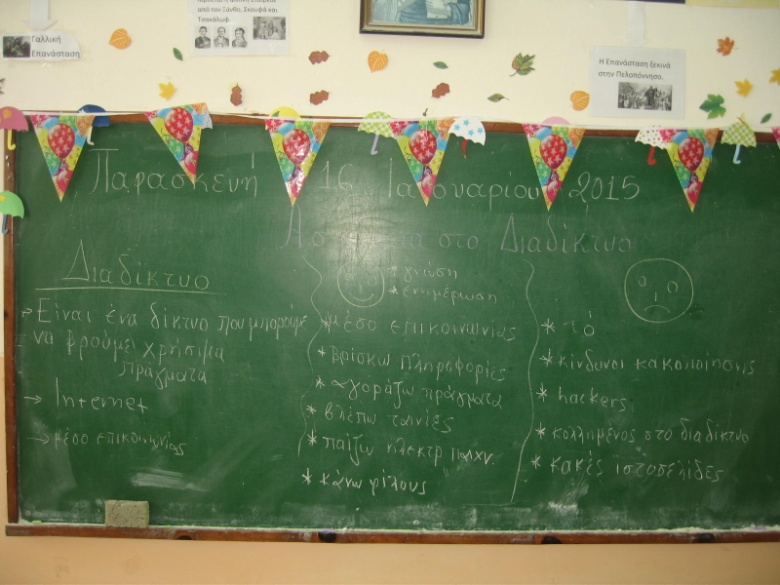 από τον Ξάνθο, Σκουφά και
Τσακάλωφ
Γαλλική
Επανάσταση
Η Επανάσταση ξεκινά
στην Πελοπόννησο.
Παρασκευή 16 Ιανουαρίου 2015
στο Διαδίκτυο
Διαδίκτυο
→ Είναι ένα δίκτυο που μπορούμε
να βρούμε χρήσιμα
πράγματα
→ Internet
→ μέσο επικοινωνίας
* γνώση
* ενημέρωση
* μέσο επικοινωνίας
* βρίσκω πληροφορίες
* αγοράζω πράγματα
* βλέπω ταινίες
* παίζω ηλεκτρ παιχν.
* κάνω φίλους
* ιό
* κίνδυνοι κακοποίησης
* hackers
* κολλημένος στο διαδίκτυο
* κακές ιστοσελίδες